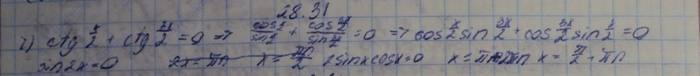 28.31
2) ctg x/2 + ctg 3x/2 = 0 => cos x/2 / sin x/2 + cos 3x/2 / sin 3x/2 = 0 => cos x/2 sin 3x/2 + cos 3x/2 sin x/2 = 0
sin 2x = 0 2x = πn x = πn/2 2 sin x cos x = 0 x = πn x = π/2 + πn